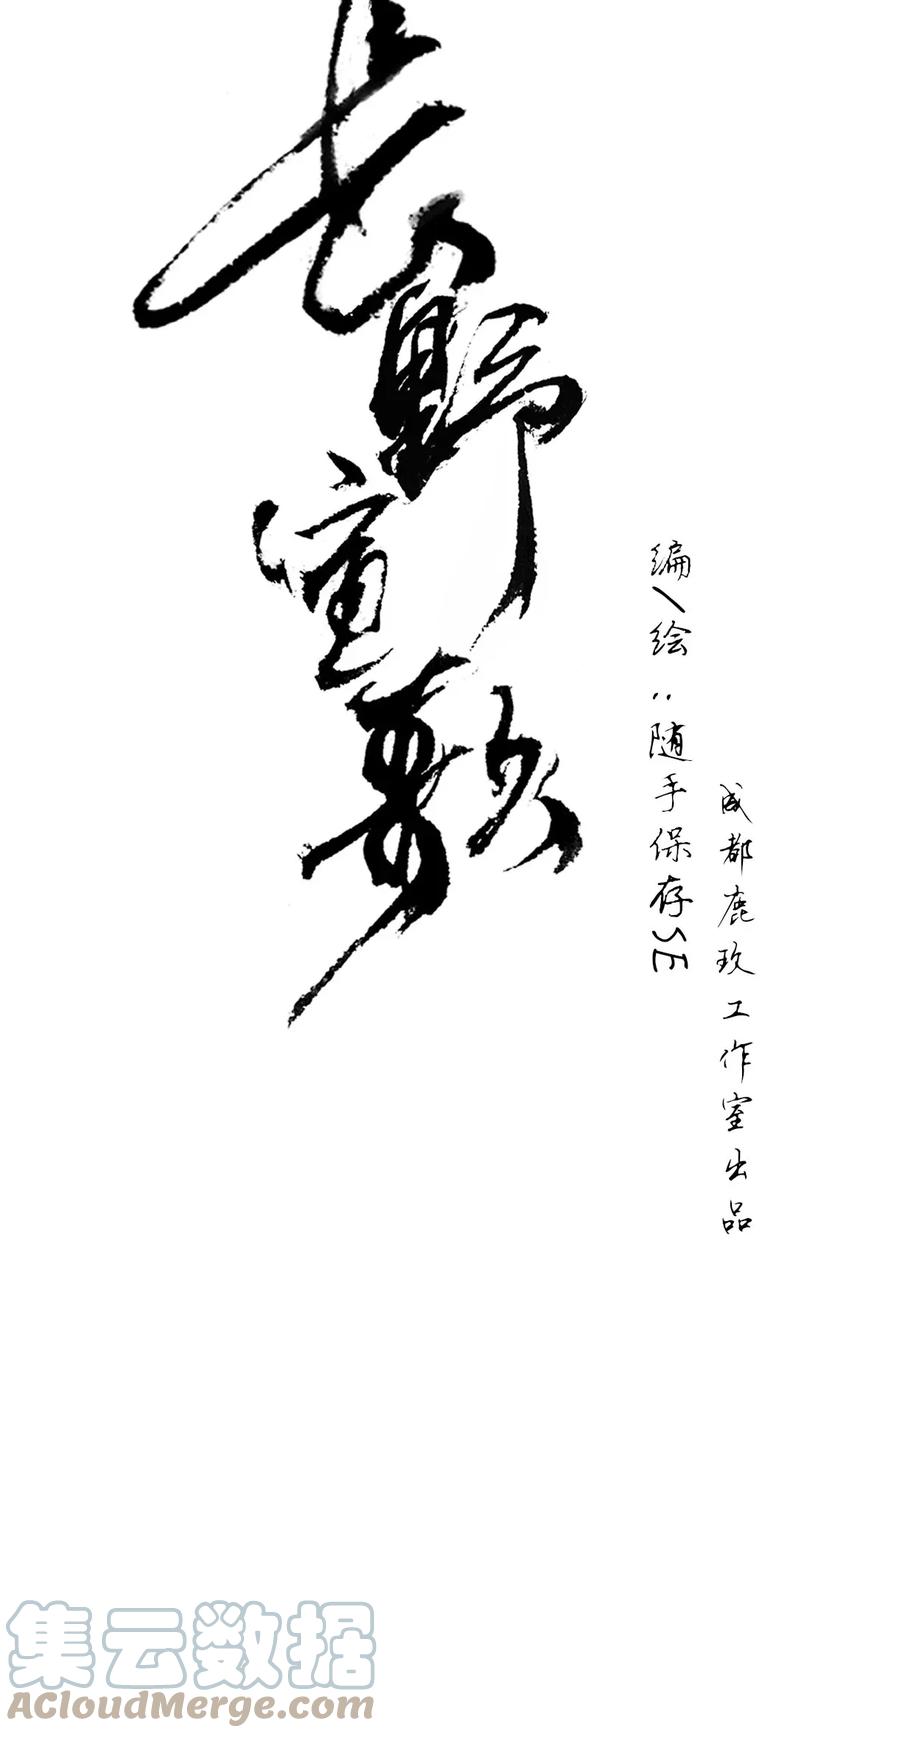 长野蜜歌
编/绘:随手保存SE
成都鹿玖工作室出品
集云数据
ACloudMerge.com